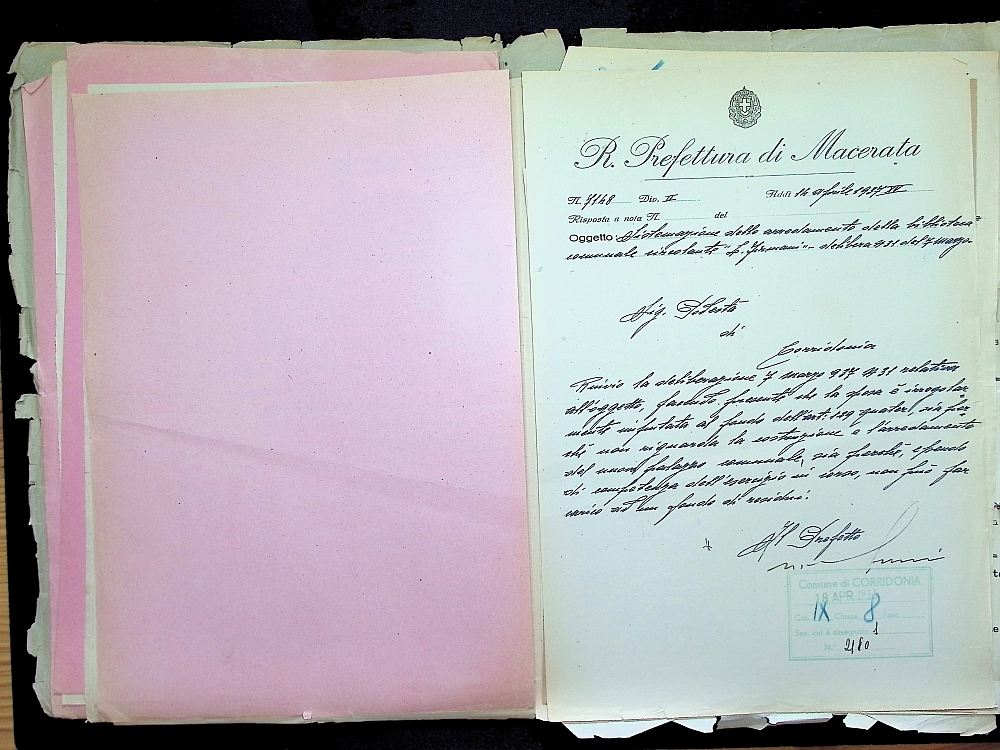 R. Prefettura di Macerata
N. 7148 Div. II Addì 14 Aprile 1937 XV
Risposta a nota N. del
Oggetto: Sistemazione dello arredamento della biblioteca
comunale circolante "F. Firmani" - delibera 431 del 7 marzo
Sig. Podestà
di
Corridonia
Rinvio la deliberazione 7 marzo 937 N 31 relativa
all'oggetto, facendo presente che la spesa è irregolar
mente imputata al fondo dell'art. 159 quater, sia per
chè non riguarda la costruzione e l'arredamento
del nuovo palazzo comunale, sia perchè, essendo
di competenza dell'esercizio in corso, non può far
carico ad un fondo di residui.
Il Prefetto
Comune di CORRIDONIA
18 APR
Cat. IX Classe 8 Fasc.
Sez. cui è assegnato 1
N. 2180